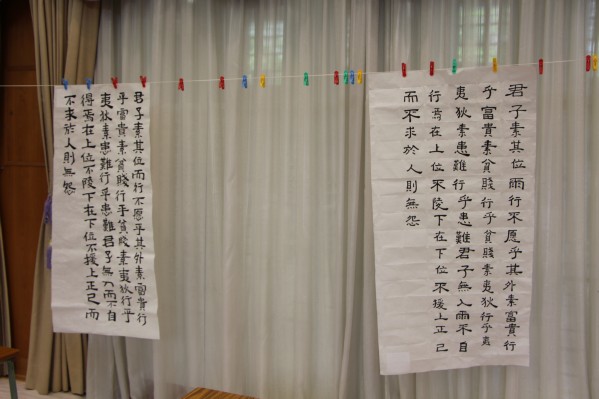 君子素其位而行不愿乎其外素富貴行
乎富貴素貧賤行乎貧賤素夷狄行乎夷
夷狄素患難行乎患難君子無入而不自
行焉在上位不陵下在下位不援上正己
而不求於人則無怨
君子素其位而行不愿乎其外素富貴行
乎富貴素貧賤行乎貧賤素夷狄行乎
夷狄素患難行乎患難君子無入而不自
得焉在上位不陵下在下位不援上正己而
不求於人則無怨